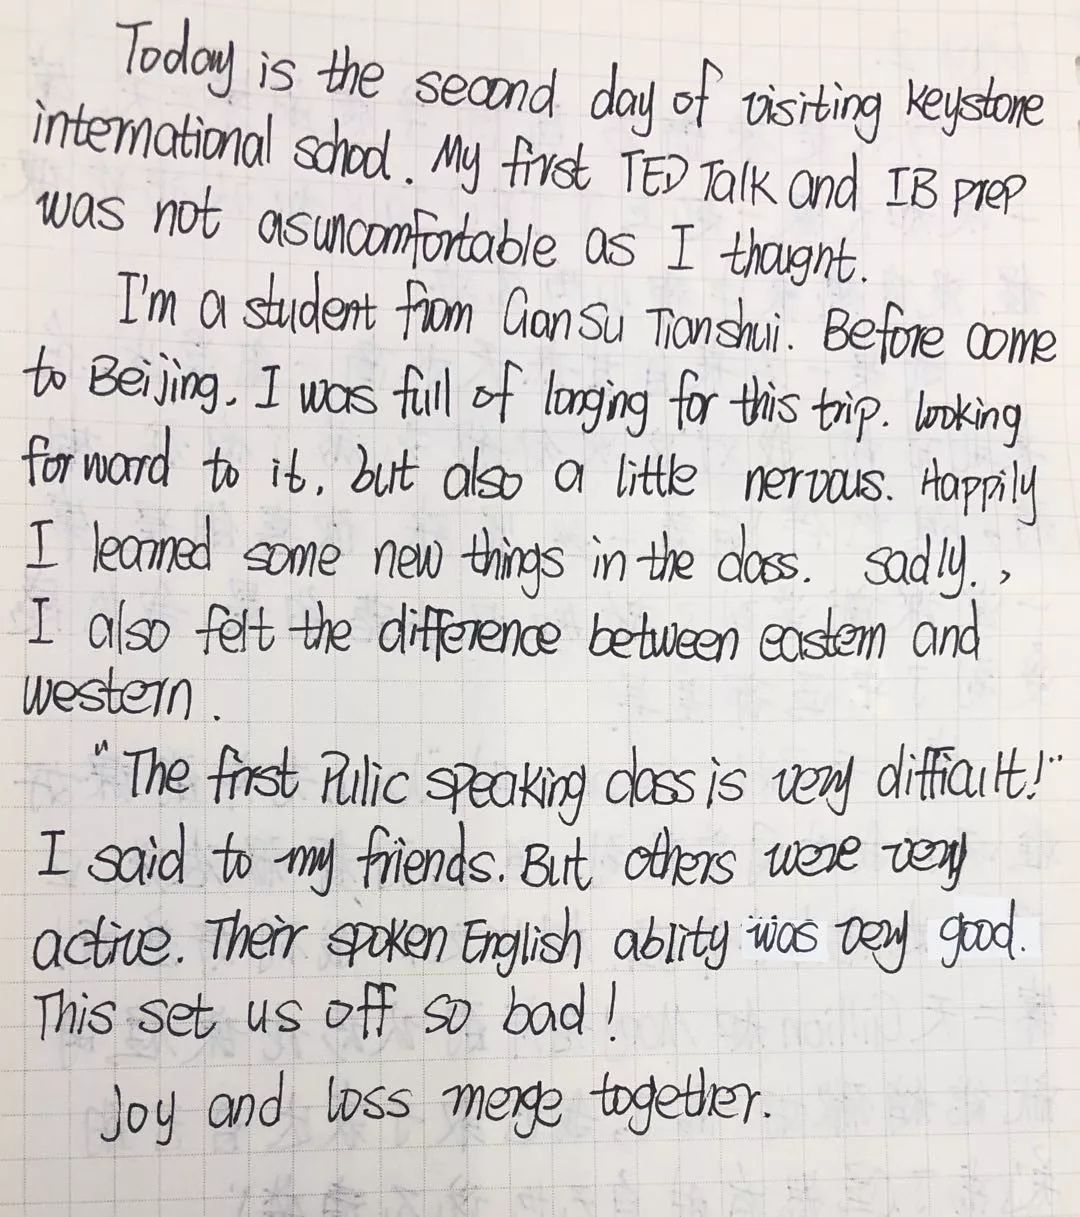 Today is the second day of visiting keystone
international school. My first TED Talk and IB prep
was not asuncomfortable as I thought.
I'm a student from GanSu Tianshui. Before come
to Beijing. I was full of longing for this trip. looking
forward to it, but also a little nervous. Happily
I learned some new things in the class. sadly. ,
I also felt the difference between eastern and
western.
"The first Pulic speaking class is very difficult!"
I said to my friends. But others were very
active. Their spoken English ablity was very good.
This set us off so bad!
Joy and loss merge together.